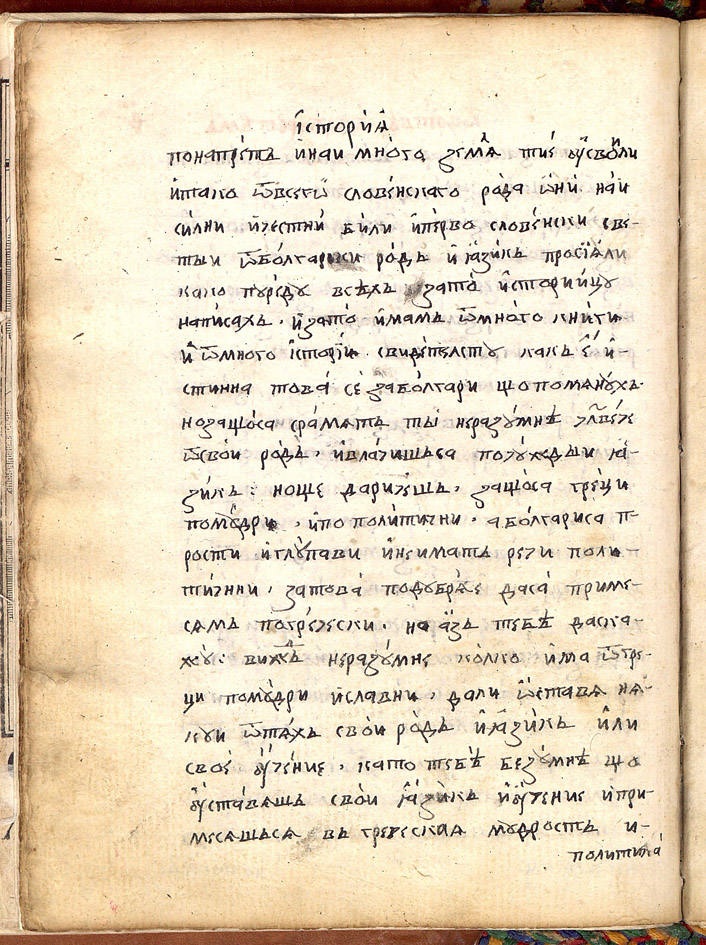 їсторїѧ
понапрѣтъ инаи много земѧ тиѣ ѹсвоили
итако ѿвсегѡ словенскаго рода ѡни наи
силни ичестни били иперво словенски све-
тыи ѿболгарски родъ иꙗзикъ просїꙗли
како пуреду всѣхъ зато историицу
написахъ. изато имамъ ѿмного книги
и ѿмного їсторїи свидетелсту какъ є и-
стинна това сѐ заболгари що помѧнухъ.
нозащоса срамѧтъ ты неразумнѣ
ѿсвои родъ, ивлачишъса почуждыи ꙗ-
зикъ: ноще даричешъ, защоса греци
помꙋдри, ипо политични, а болгариса п-
рости иглупави инеимаtъ речи поли-
тични, затова подобрѧе даса приме-
сѧмъ погречески. на азъ тебѣ даска-
жу: вижъ неразумне колко има ѿгре-
ци помꙋдри иславни, дали ѡставѧ нѧ-
кеи ѿтѧхъ свои родъ иꙗзикъ или
свое ѹчение, като тебѣ безумнѣ що
ѹставѧшъ свои ꙗзикъ иѹчение ипри-
месѧшъсѧ въ греческаѧ мꙋдростъ и-
политика